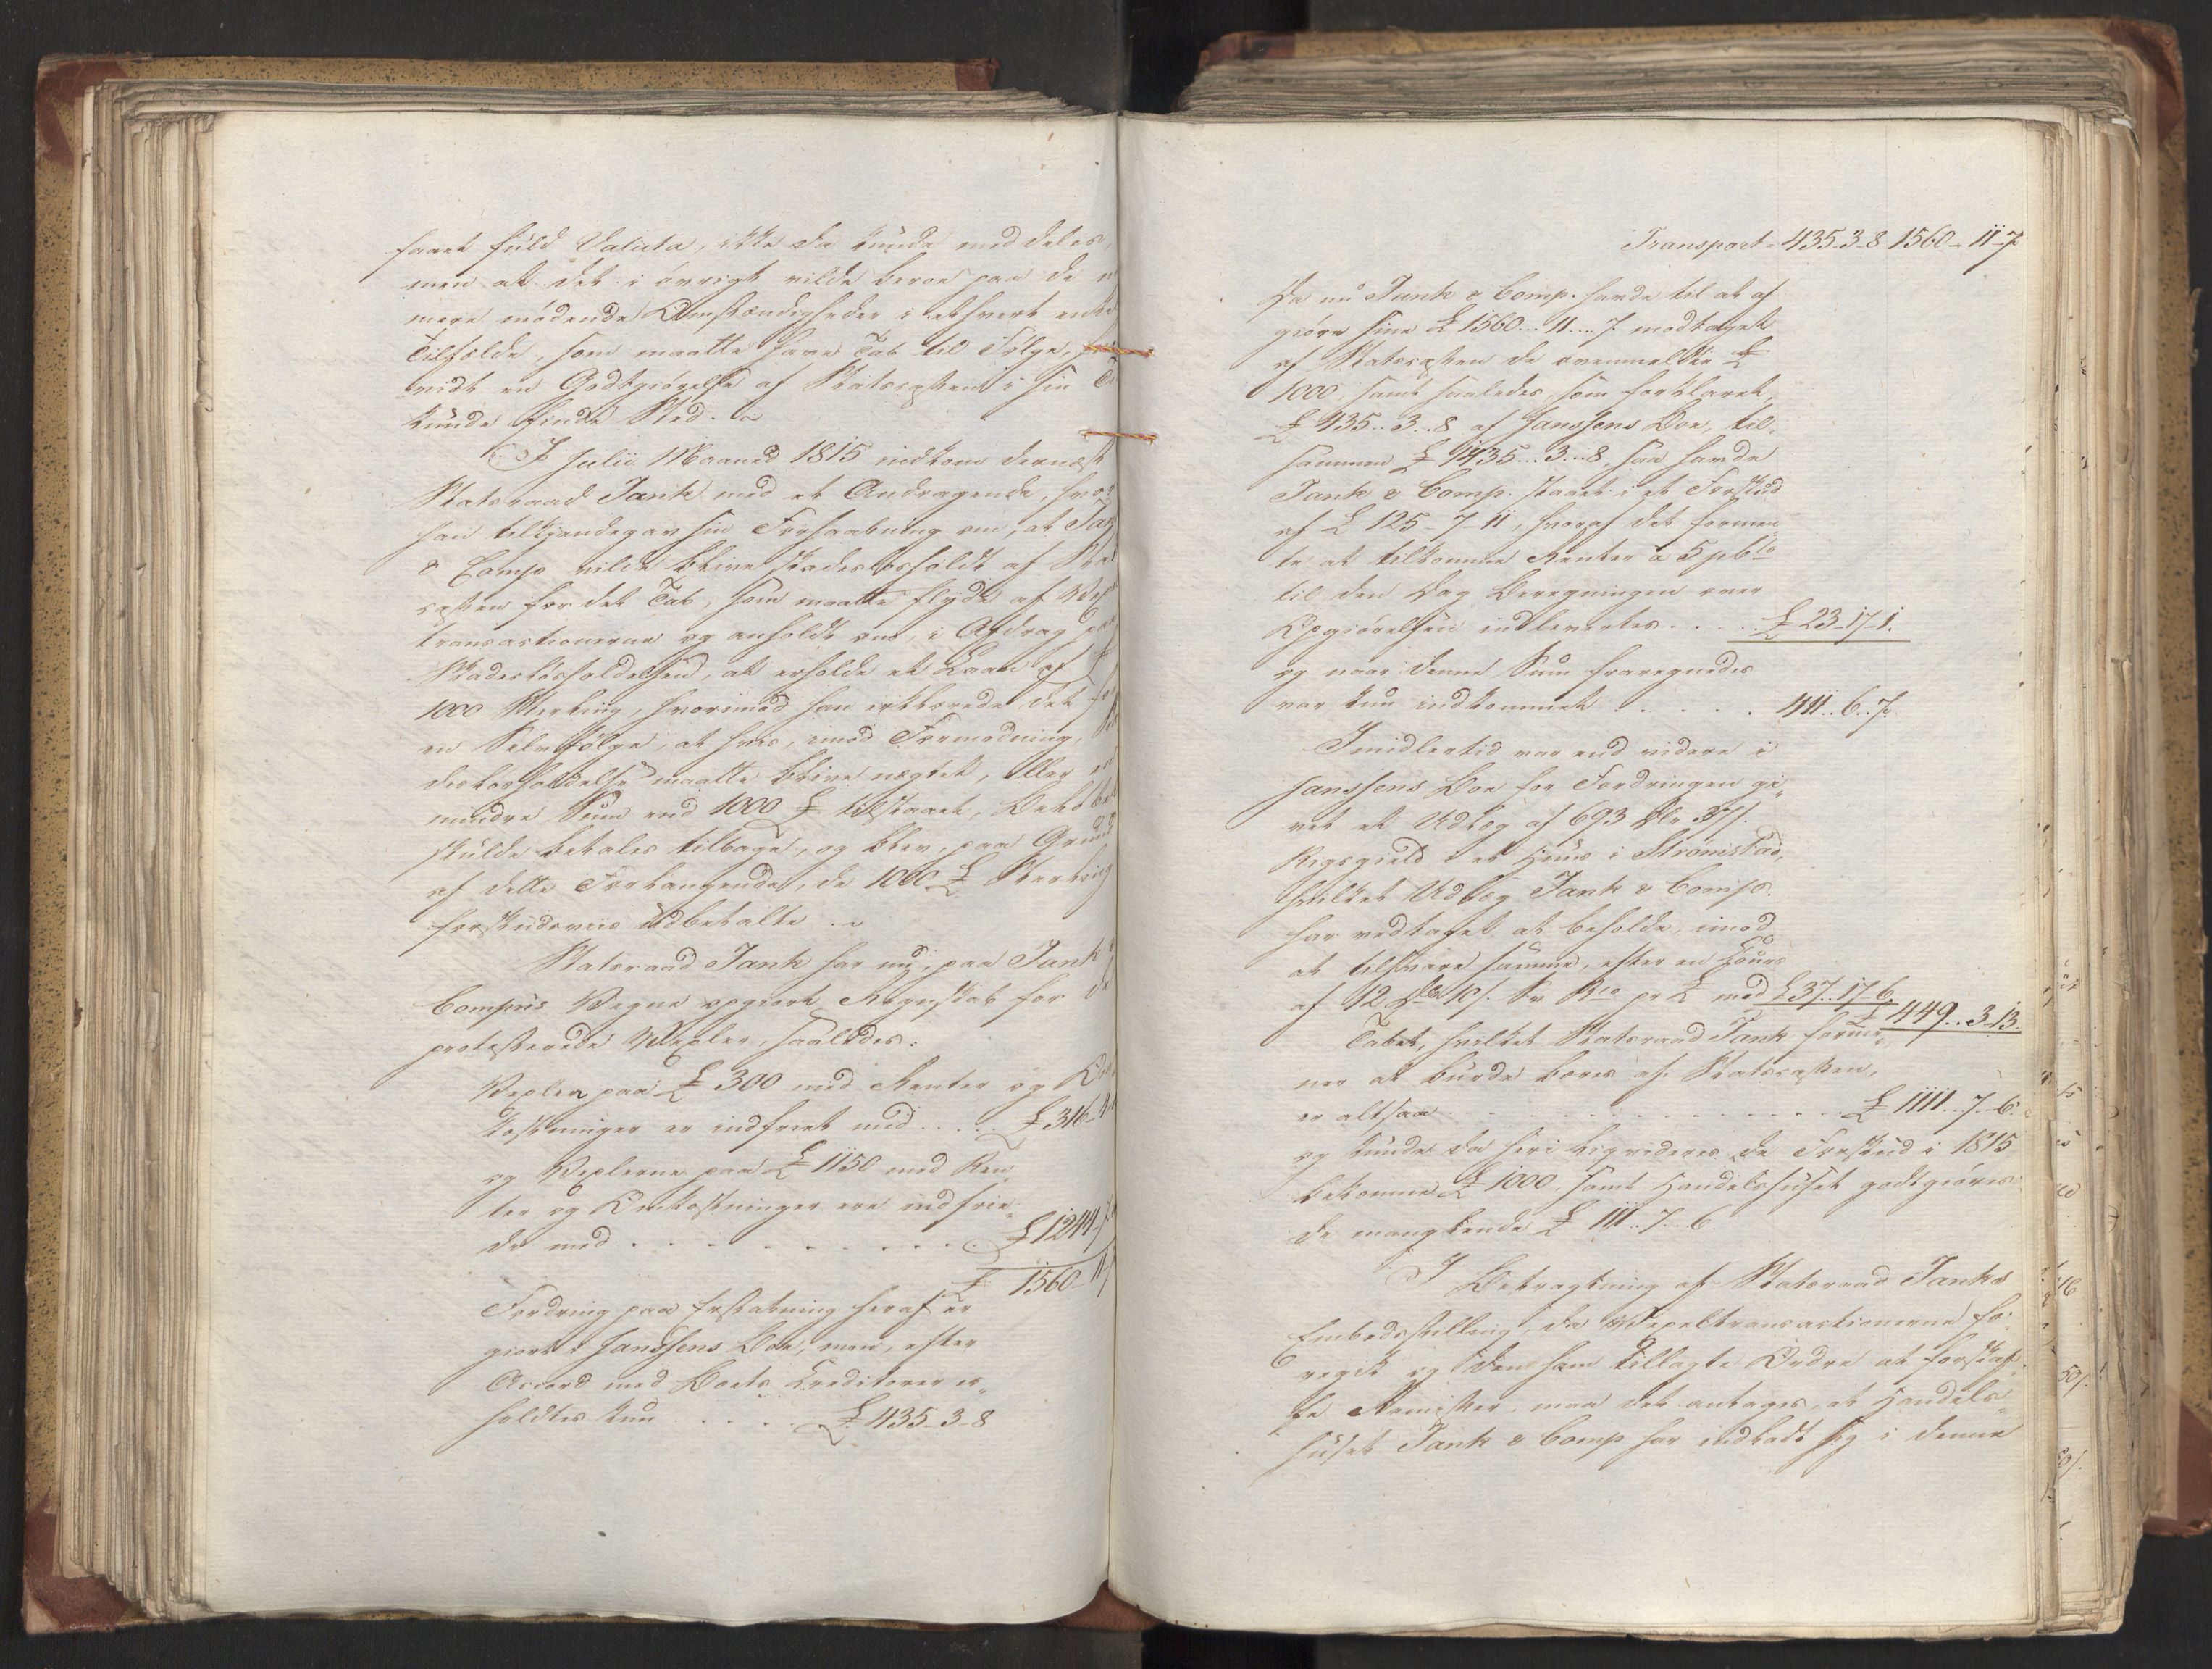 faaet fuld Valuta, ikke da kunde meddeles,
men at det i øvrigt vilde beroe paa de
mere mødende Omstændigheder i ethvert enkelt
Tilfælde, som maatte have Tab til Følge, hvor
vidt en Godtgjørelse af Statscassen i sin Tid
kunde finde Sted. ~
I Julii Maaned 1815 indkom dernæst
Statsraad Tank med et Andragende, hvori
han tilkjendegav sin Forhaabning om, at Tank
& Comp vilde blive skadesløsholdt af Stats
cassen for det Tab, som maatte flyde af Vexel
transactionerne og anholdt om, i Afdrag paa
Skadesløsholdelsen, at erholde et Laan af £
1000 Sterling, hvorimod han erklærede det for
en Selvfølge, at hvis, imod Formodning, Ska
desløsholdelse maatte blive nægtet, eller en
mindre Sum end 1000 £ tilstaaet, Det
skulde betales tilbage, og blev, paa Grund
af dette Forlangende, de 1000 £ Sterling
forskudsviis udbetalte. ~
Statsraad Tank har nu, paa Tank &
Compns Vegne opgjort Regnskab for de
protesterede Vexler, saaledes:
Vexler paa £ 300 med Renter og Om
kostninger er indfriet med . . . . . £ 316
og Vexlerne paa £ 1150 med Ren
ter og Omkostninger ere indfrie
de med . . . . . . . . . . £ 1244
£ 1560 11
Fordring paa Erstatning heraf er
gjort i Janssens Boe, men, efter
Accord med Boets Creditorer er
holdtes kun . . . . £ 435-3-8
Transport 435-3-8 1560-11-7
Da nu Tank & Comp. havde til at af
gjøre sine £ 1560..11...7 modtaget
af Statscassen de ovenmeldte £
1000, samt saaledes, som forklaret,
£ 435..3..8 af Janssens Boe, til
sammen £ 1435...3...8, saa havde
Tank & Comp. staaet i et Forskud
af £ 125-7-11, hvoraf det formeen
te at tilkomme Renter a 5 pCto
til den Dag Beregningen over
Opgjørelsen indleveredes . . . . . £ 23-17-1.
og naar denne Sum fraregnedes
var kun indkommet . . . . . 411..6..7.
Imidlertid var end videre i
Janssens Boe for Fordringen gi
vet et Udlæg af 693 Rdr 37 s.
Rigsgield i et Huus i Strømstad,
hvilket Udlæg Tank & Comps.
har vedtaget at beholde, imod
at tilsvare samme, efter en Cours
af 12 Rdr 10 s. Sv Rgs pr £ med £ 37..17-6.
£ 449..3-13.
Tabet, hvilket Statsraad Tank formee
ner at burde bæres af Statscassen,
er altsaa . . . . . . . . . . . . £ 1111..7..6.
og kunde da heri liqvideres de Forskud i 1815
bekomne £ 1000, samt Handelshuset godtgjøres
de manglende £ 111..7..6
I Betragtning af Statsraad Tanks
Embedsstilling, da Vexeltransactionerne fo
regik og den ham tillagte Ordre at forskaf
fe Remisser, maa det antages, at Handels
huset Tank & Comp har indladt sig i denne